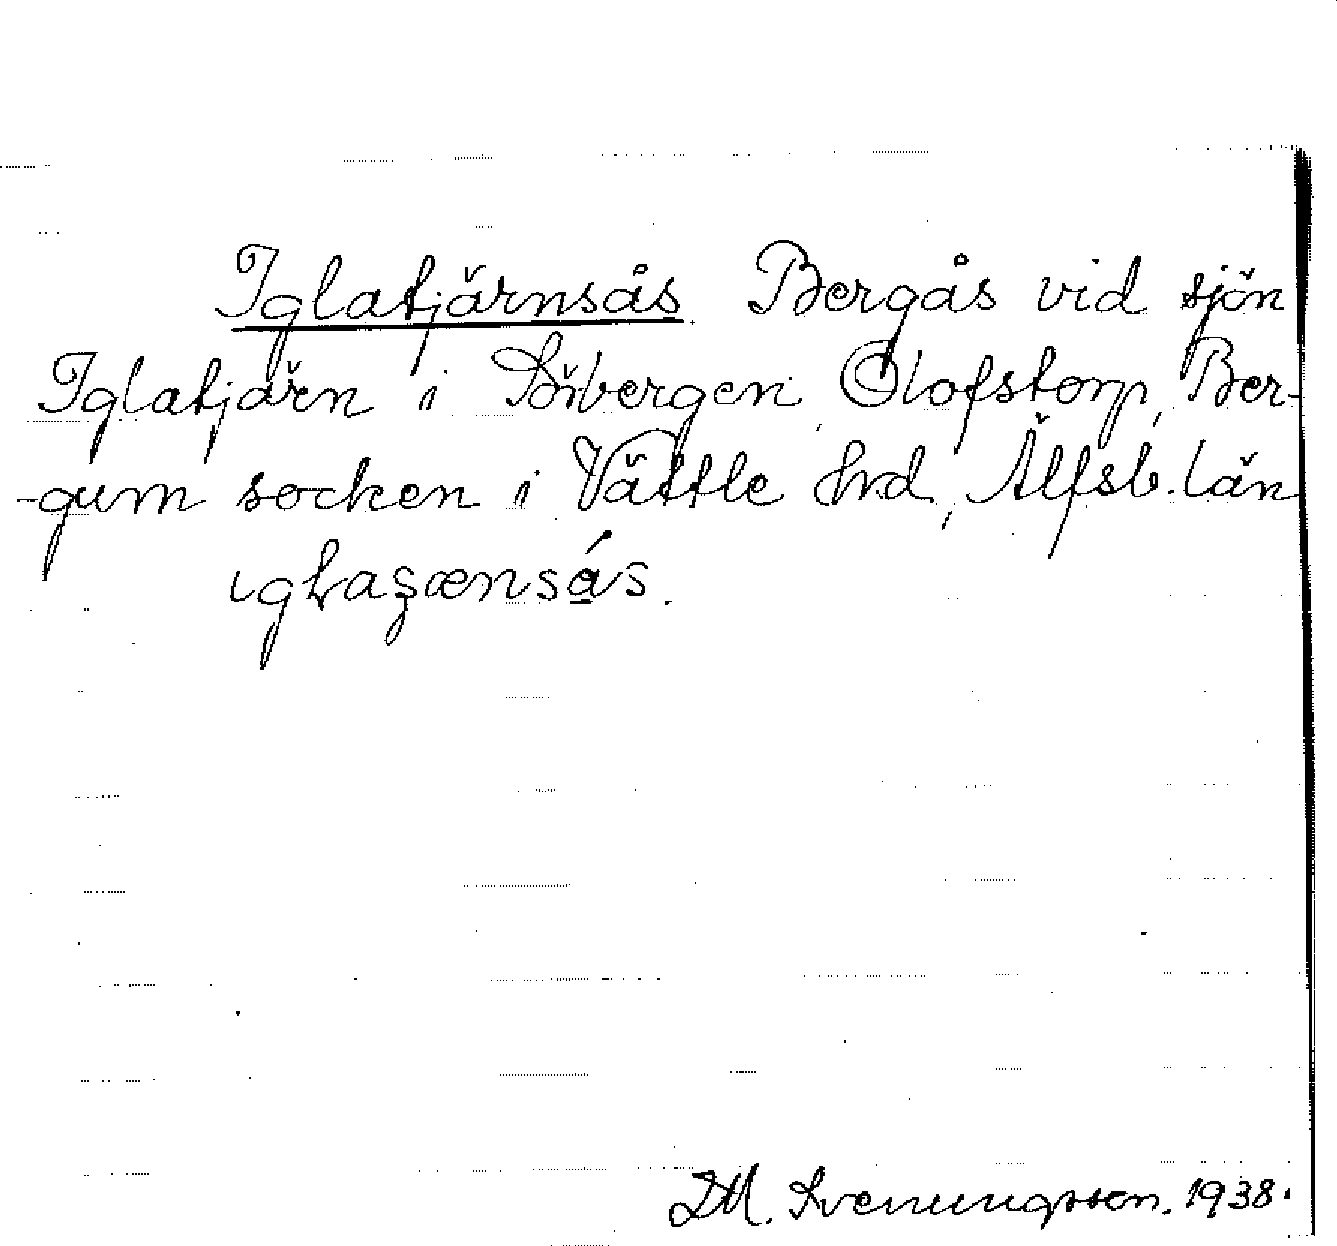 Iglatjärnsås Bergås vid sjön
Iglatjärn i Sörbergen, Olofstorp, Ber-
-gum socken i Vättle Hrd, Älfsb. län
ás.
D.M. Svenungsson. 1938.